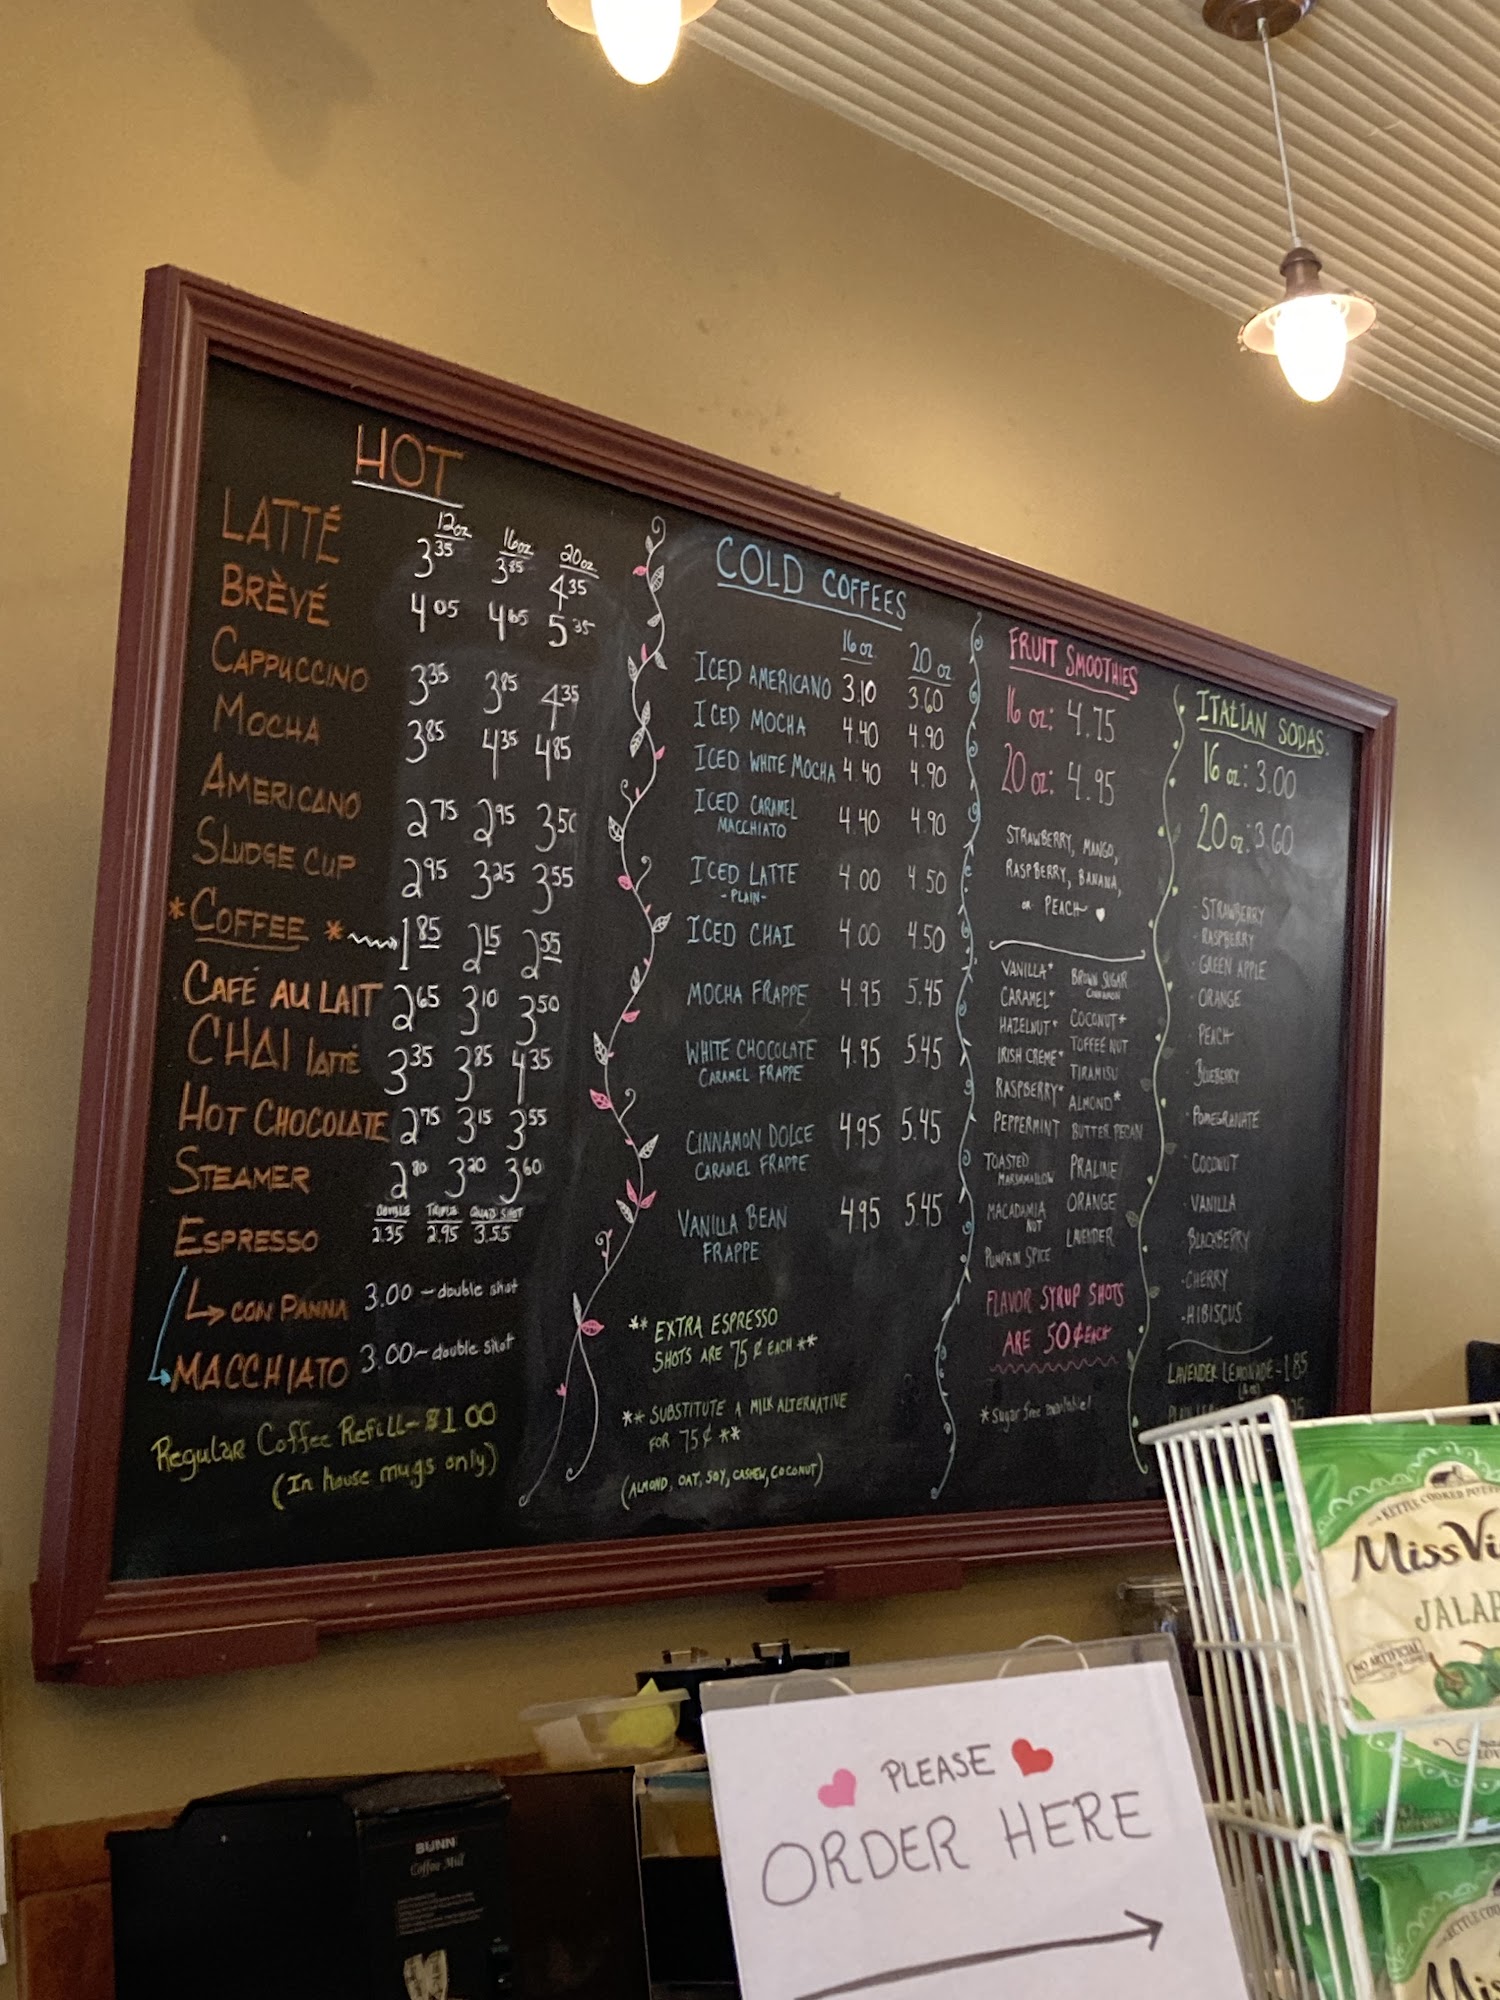 HOT
12oz 16oz 20oz
LATTÉ 3.35 3.85 4.35
BRÈVÉ 4.05 4.65 5.35
CAPPUCCINO 3.35 3.85 4.35
MOCHA 3.85 4.35 4.85
AMERICANO 2.75 2.95 3.50
SLUDGE CUP 2.95 3.25 3.55
*COFFEE* 1.85 2.15 2.55
CAFÉ AU LAIT 2.65 3.10 3.50
CHAI LATTÉ 3.35 3.85 4.35
HOT CHOCOLATE 2.75 3.15 3.55
STEAMER 2.80 3.20 3.60
DOUBLE TRIPLE QUAD SHOT
ESPRESSO 2.35 2.95 3.55
CON PANNA 3.00 - double shot
MACCHIATO 3.00 - double shot
Regular Coffee Refill - $1.00
(In house mugs only)
COLD COFFEES
16 oz 20 oz
ICED AMERICANO 3.10 3.60
ICED MOCHA 4.40 4.90
ICED WHITE MOCHA 4.40 4.90
ICED CARAMEL
MACCHIATO 4.40 4.90
ICED LATTE 4.00 4.50
-PLAIN-
ICED CHAI 4.00 4.50
MOCHA FRAPPE 4.95 5.45
WHITE CHOCOLATE 4.95 5.45
CARAMEL FRAPPE
CINNAMON DOLCE 4.95 5.45
CARAMEL FRAPPE
VANILLA BEAN 4.95 5.45
FRAPPE
** EXTRA ESPRESSO
SHOTS ARE 75¢ EACH **
** SUBSTITUTE A MILK ALTERNATIVE
FOR 75¢ **
(ALMOND, OAT, SOY, CASHEW, COCONUT)
FRUIT SMOOTHIES
16 oz: 4.75
20 oz: 4.95
STRAWBERRY, MANGO,
RASPBERRY, BANANA,
or PEACH
VANILLA* BROWN SUGAR
CINNAMON
CARAMEL*
HAZELNUT* COCONUT*
IRISH CREME* TOFFEE NUT
TIRAMISU
RASPBERRY* ALMOND*
PEPPERMINT BUTTER PECAN
TOASTED
MARSHMALLOW PRALINE
MACADAMIA
NUT ORANGE
LAVENDER
PUMPKIN SPICE
FLAVOR SYRUP SHOTS
ARE 50¢ EACH
*Sugar free available!
ITALIAN SODAS.
16 oz: 3.00
20 oz: 3.60
- STRAWBERRY
- RASPBERRY
- GREEN APPLE
- ORANGE
- PEACH
- BLUEBERRY
- POMEGRANATE
- COCONUT
- VANILLA
- BLACKBERRY
- CHERRY
- HIBISCUS
LAVENDER LEMONADE - 1.85
BUNN
Coffee Mill
PLEASE
ORDER HERE
KETTLE COOKED
Miss Vi
JALAP
NO ARTIFICIAL